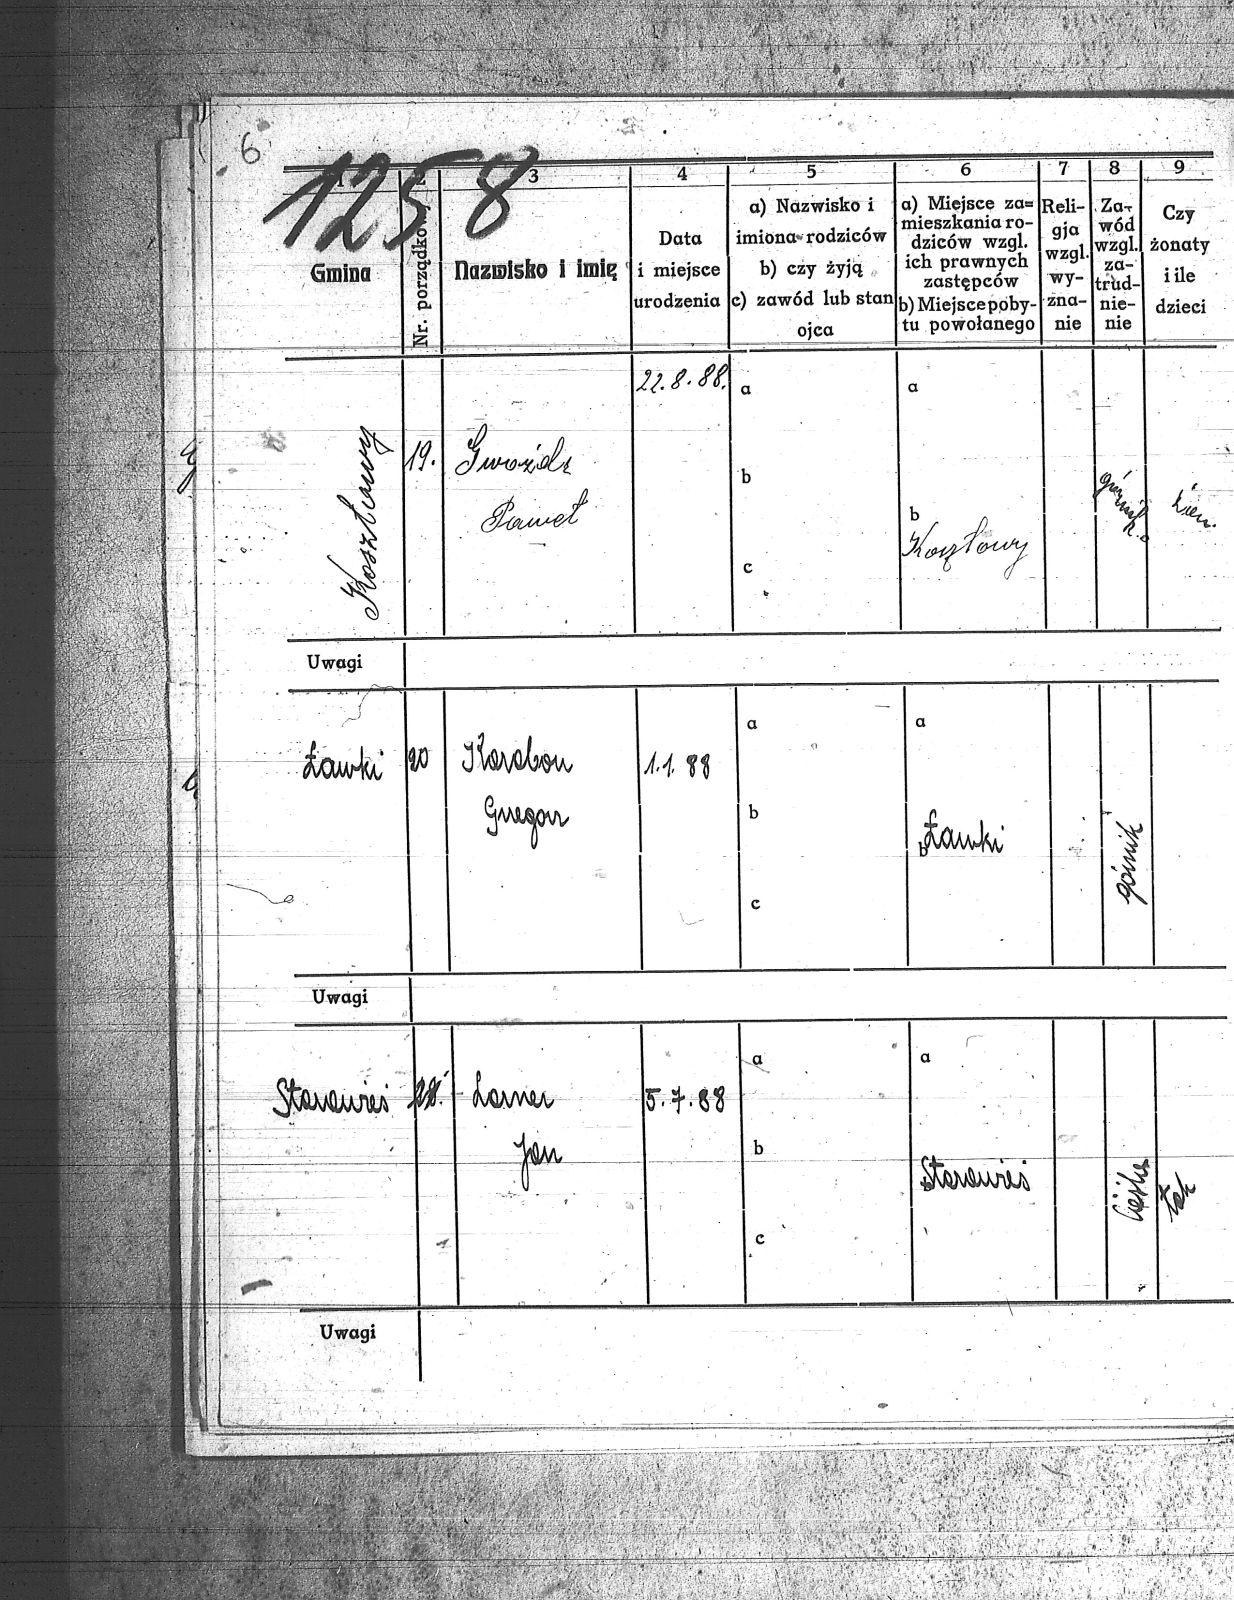 6
1258
1 3 4 5 6 7 8 9
Gmina
Nr. porządkow.
Nazwisko i imię
Data
i miejsce
urodzenia
a) Nazwisko i
imiona rodziców
b) czy żyją
c) zawód lub stan
ojca
a) Miejsce za=
mieszkania ro-
dziców wzgl.
ich prawnych
zastępców
b) Miejsce poby-
tu powołanego
Reli-
gja
wzgl.
wy-
zna-
nie
Za-
wód
wzgl.
za-
trud-
nie-
nie
Czy
żonaty
i ile
dzieci
Kosztowy
19.
Gwoźdz
Paweł
22.8.88.
a
b
c
a
b
Kosztowy
górnik.
żon.
Uwagi
Ławki
20
Karabon
Gregor
1.1.88
a
b
c
a
b
Ławki
górnik
Uwagi
Starawieś
Larner
Jan
5.7.88
a
b
c
a
b
Starawieś
Cieśla
tak
Uwagi